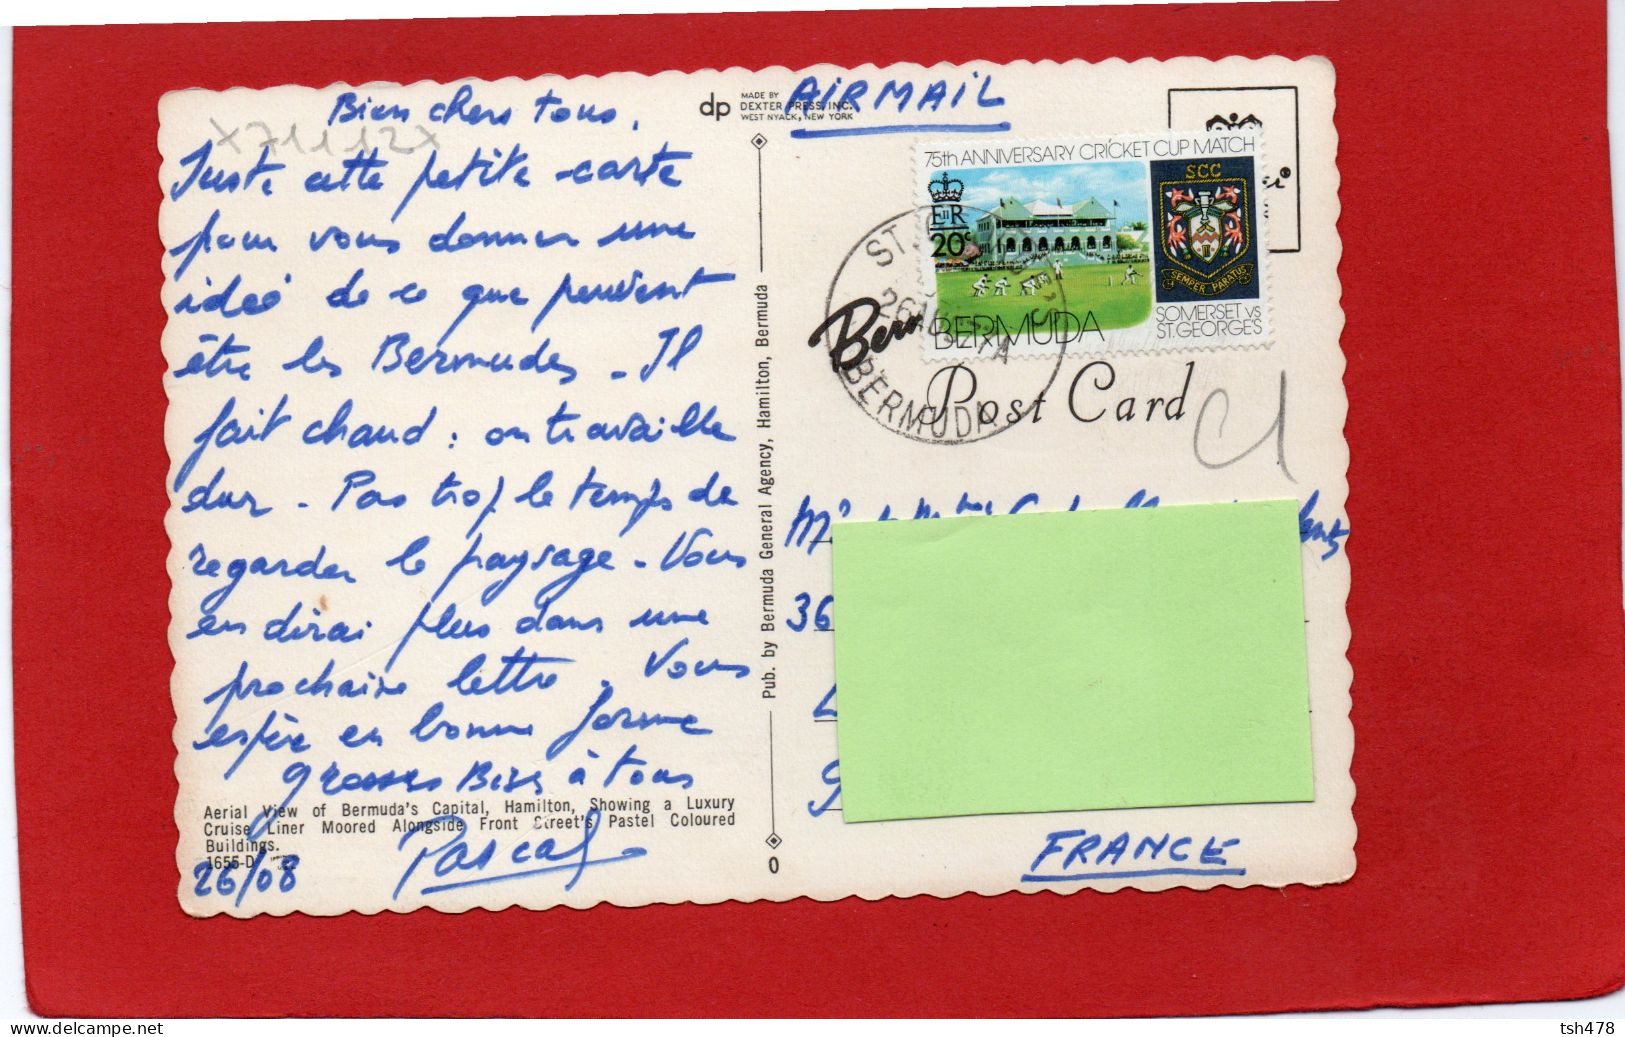 Bien chers tous,
Juste cette petite carte
pour vous donner une
idée de ce que peuvent
être les Bermudes - Il
fait chaud : on travaille
dur - Pas trop le temps de
regarder le paysage - Vous
en dirai plus dans une
prochaine lettre. Vous
espère en bonne forme
grosses Bises à tous
Pascal
26/08
X71112X
Aerial View of Bermuda's Capital, Hamilton, Showing a Luxury
Cruise Liner Moored Alongside Front Street's Pastel Coloured
Buildings.
1655-D
dp
MADE BY
DEXTER PRESS, INC.
WEST NYACK, NEW YORK
Pub. by Bermuda General Agency, Hamilton, Bermuda
0
AIRMAIL
75th ANNIVERSARY CRICKET CUP MATCH
SCC
EIIR
20c
SEMPER PARATUS
BERMUDA
SOMERSET vs
ST. GEORGE'S
ST
26
BERMUDA
Berm
Post Card
36
FRANCE
delcampe.net
tsh478